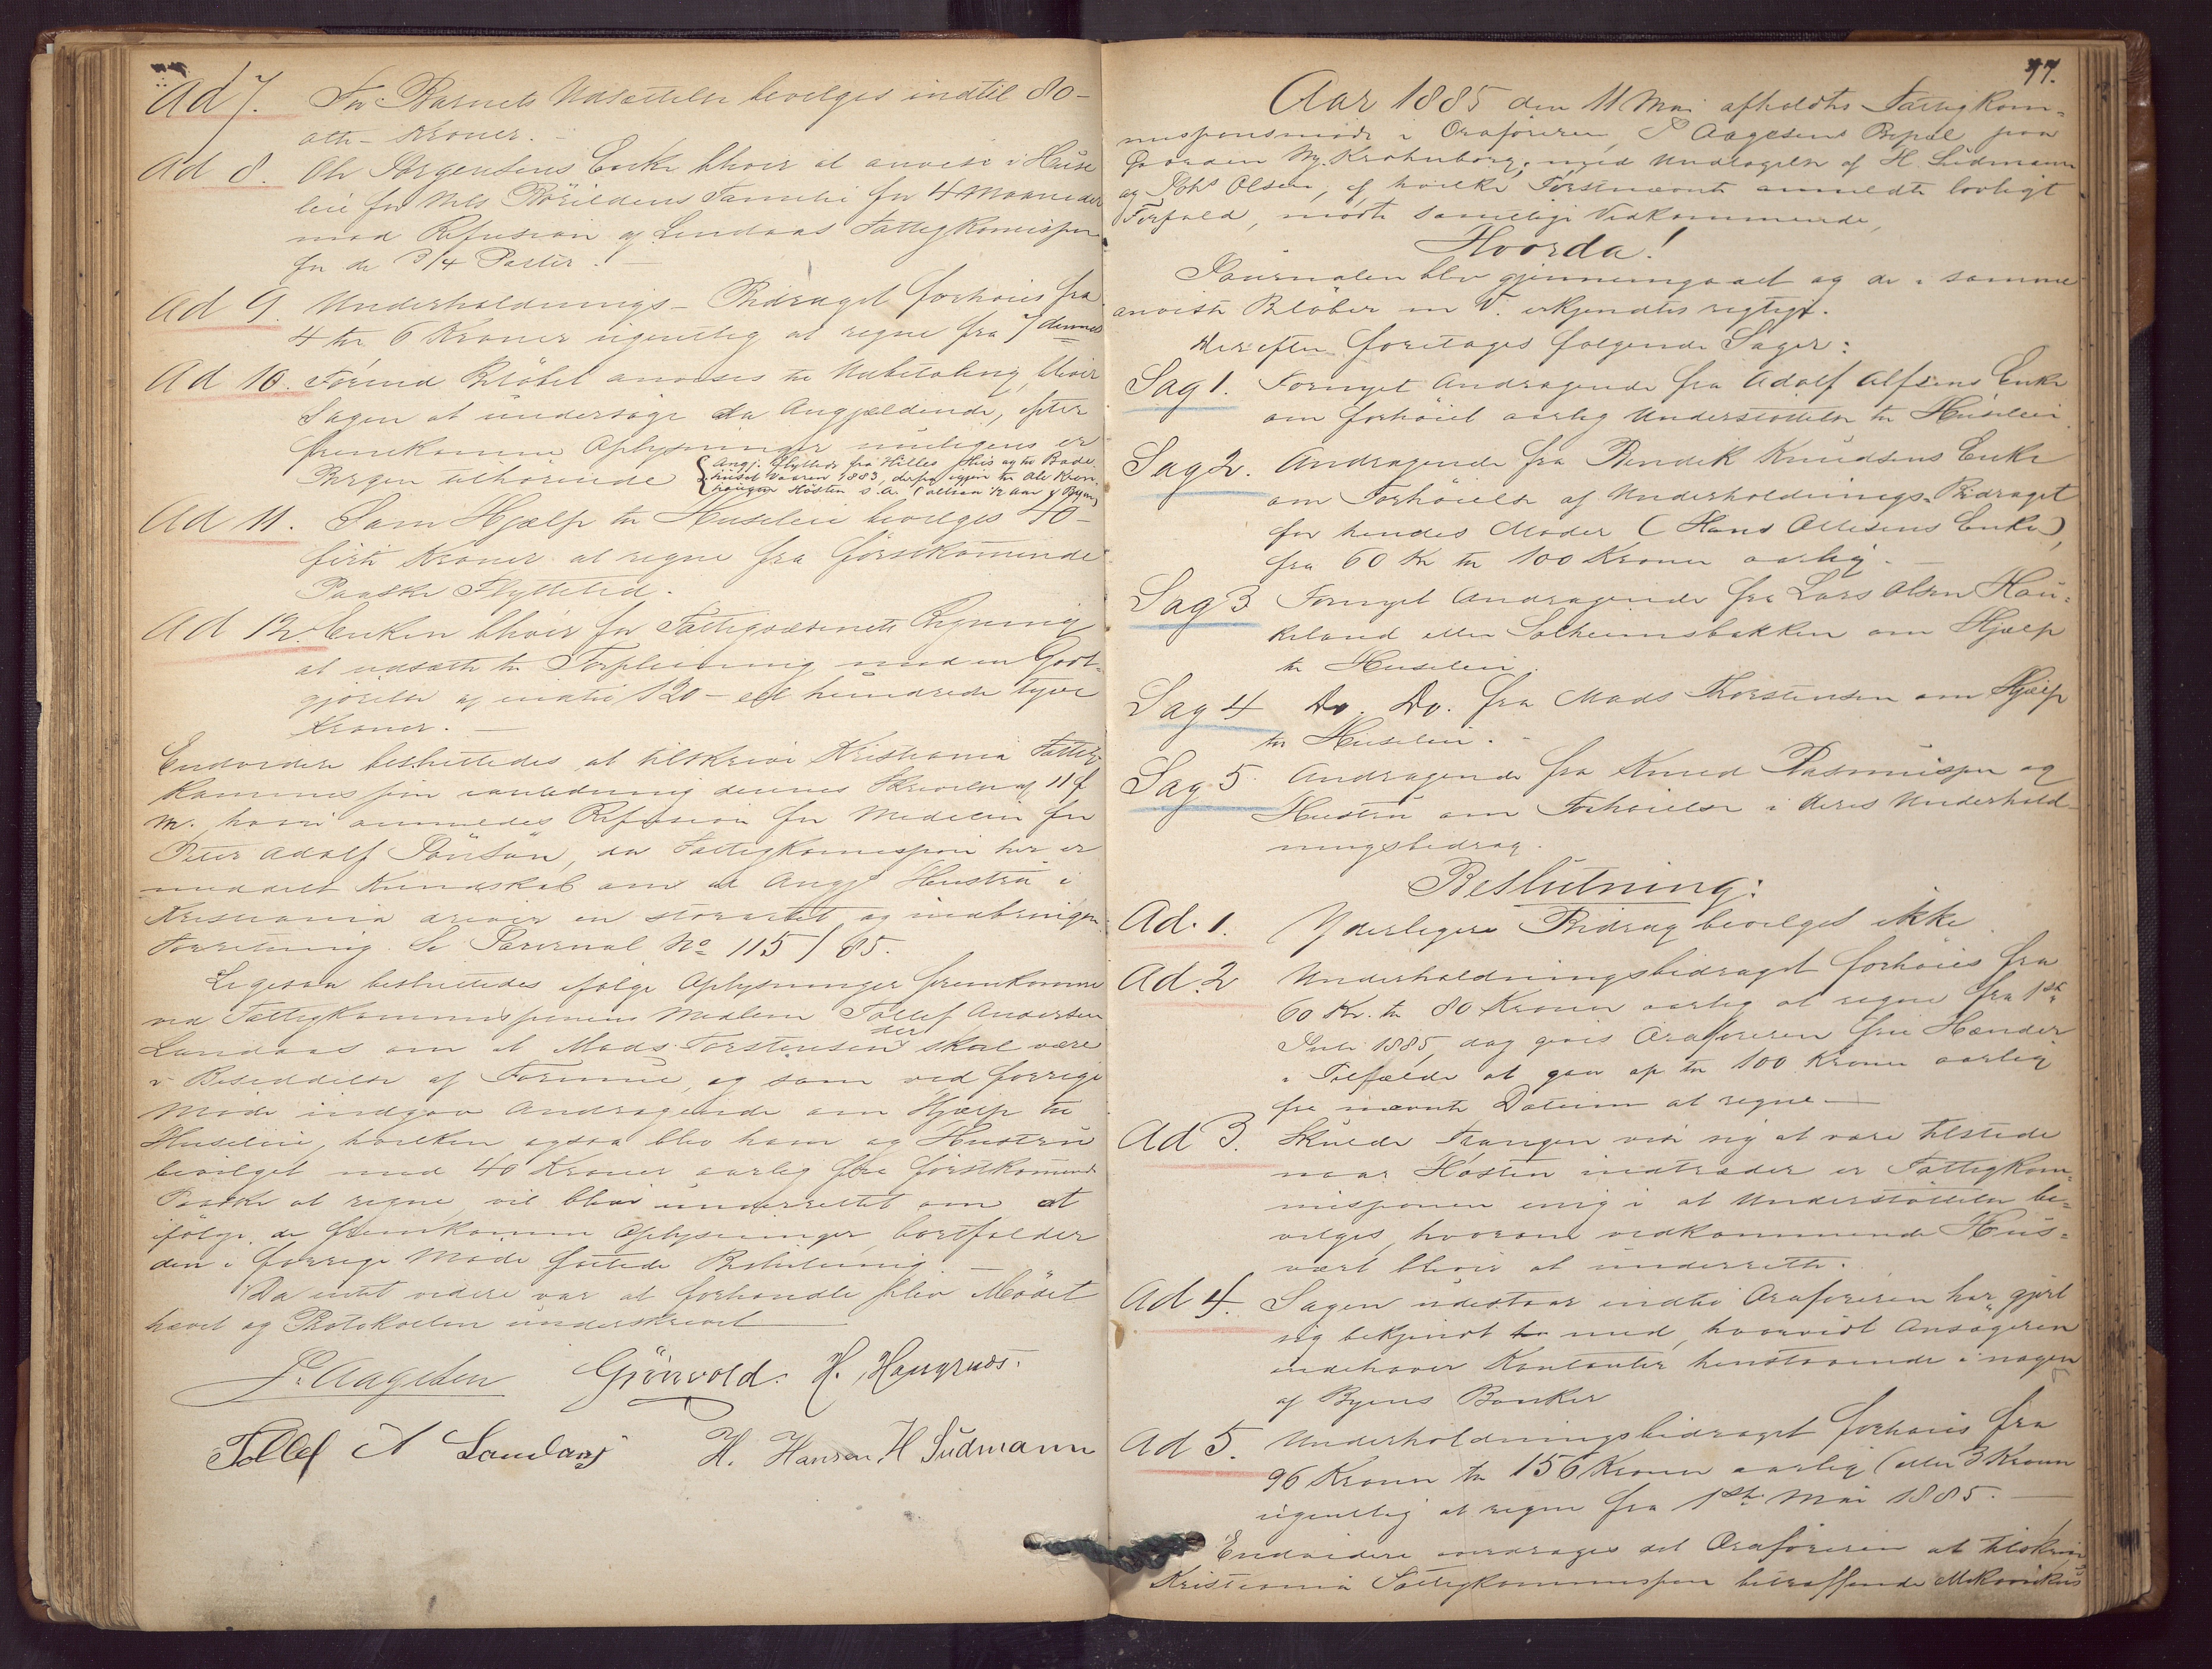 Ad 7. For Barnets Udsættelse bevilges indtil 80-
otti - Kroner. -
Ad 8. Ole Jørgensens Enke bliver at anvise i Huse
leie for Nels Familie for 4 Maaneder
mod Refusion af Lindaas Fattigkomission
for de 3/4 Parter. -
Ad 9. Underholdnings - Bidraget forhøies fra
4 til 6 Kroner ugentlig at regne fra 7 dennes
Ad 10. Beløbet anvises til Udbetaling, bliver
Sagen at undersøge da Angjældende, efter
fremkomne Oplysninger muligens er
Bergen tilhørende { Angj. flyttede fra Hilles Hus og til Bade
huset Vaaren 1883, derfra igjen til Ole Kron
haugen Høsten s. A. (altsaa 1/2 Aar i Byen)
Ad 11. Som Hjælp til Husleie bevilges 40-
firti Kroner at regne fra førstkommende
Paaske Flyttetid.
Ad 12. Enken bliver for Fattigvæsenets Regning
at udsætte til Forpleining mod en Godt-
gjørelse af indtil 120 - et hundrede tyve
Kroner. -
Endvidere besluttedes at tilskrive Kristiania Fattig
Kommission i anledning dennes Skrivelse af 11 f
M. hvori anmeldes Refusion for Medicin for
Peter Adolf Jönsön, da Fattigkomissionen her er
meddelt Kundskab om at Angjs Hustru i
Kristiania driver en storartet og indbringen
Forretning. Se Journal No 115/85.
Ligesaa besluttedes ifølge Oplysninger fremkomne
ved Fattigkommissionens Medlem Tollef Andersen
Landaas om at Mads Torstensen skal være
i Besiddelse af Formue, og som ved forrige
Møde indgav Andragende om Hjælp til
Husleie, hvilken ogsaa blev ham og Hustru
bevilget med 40 Kroner aarlig fra førstkommende
Paaske at regne, vil blive underrettet om at
ifølge de fremkomne Oplysninger bortfalder
den i forrige Møde fattede Beslutning -
Da intet videre var at forhandle blev Mødet
hævet og Protokollen underskrevet
P. Aagesen Grönvold. H. Haugnæs.
Tollef A Landaas H. Hansen H Südmann
77.
Aar 1885 den 11 Mai afholdtes Fattigkom-
missionsmøde i Ordføreren, P Aagesens Bopæl paa
Gaarden Ny. Krohnborg, med Undtagelse af H. Südmann
og Johs Olsen, af hvilke Førstnævnte anmeldte lovligt
Forfald, mødte samtlige Vedkommende,
Hvorda!
Journalen blev gjennemgaaet og de i samme
anviste Beløber m V. erkjendtes rigtige.
Derefter foretages følgende Sager:
Sag 1. Fornyet Andragende fra Adolf Alfsens Enke
om forhøiet aarlig Understøttelse til Husleie
Sag 2. Andragende fra Bendik Knudsens Enke
om Forhøielse af Underholdnings-Bidraget
for hendes Moder (Hans Ollesens Enke),
fra 60 Kr til 100 Kroner aarlig. -
Sag 3 Fornyet Andragende fra Lars Olsen Hau-
keland eller Solheimsbakken om Hjælp
til Husleie.
Sag 4 Do. Do. fra Mads Thorstensen om Hjælp
til Husleie. -
Sag 5. Andragende fra Knud Rasmussen og
Hustru om Forhøielse i deres Underhold-
ningsbidrag.
Beslutning:
Ad. 1. Yderligere Bidrag bevilges ikke.
Ad. 2 Underholdningsbidraget forhøies fra
60 Kr. til 80 Kroner aarlig at regne fra 1ste
Juli 1885, dog gives Ordføreren frie Hænder
i Tilfælde at gaa op til 100 Kroner aarlig
fra nævnte Datum at regne -
Ad 3. Skulde Trangen vise sig at være tilstede
naar Høsten indtræder er Fattigkom-
missionen enig i at Understøttelse be-
vilges, hvorom vedkommende Hus-
vært bliver at underrette.
Ad 4. Sagen udestaar indtil Ordføreren har gjort
sig bekjendt med, hvorvidt Ansøgeren
indehaver Kontanter henstaaende i nogen
af Byens Banker
Ad 5. Underholdningsbidraget forhøies fra
96 Kroner til 156 Kroner aarlig (eller 3 Kroner
ugentlig at regne fra 1ste Mai 1885. -
Endvidere overdrages det Ordføreren at tilskrive
Kristiania Fattigkommission betræffende